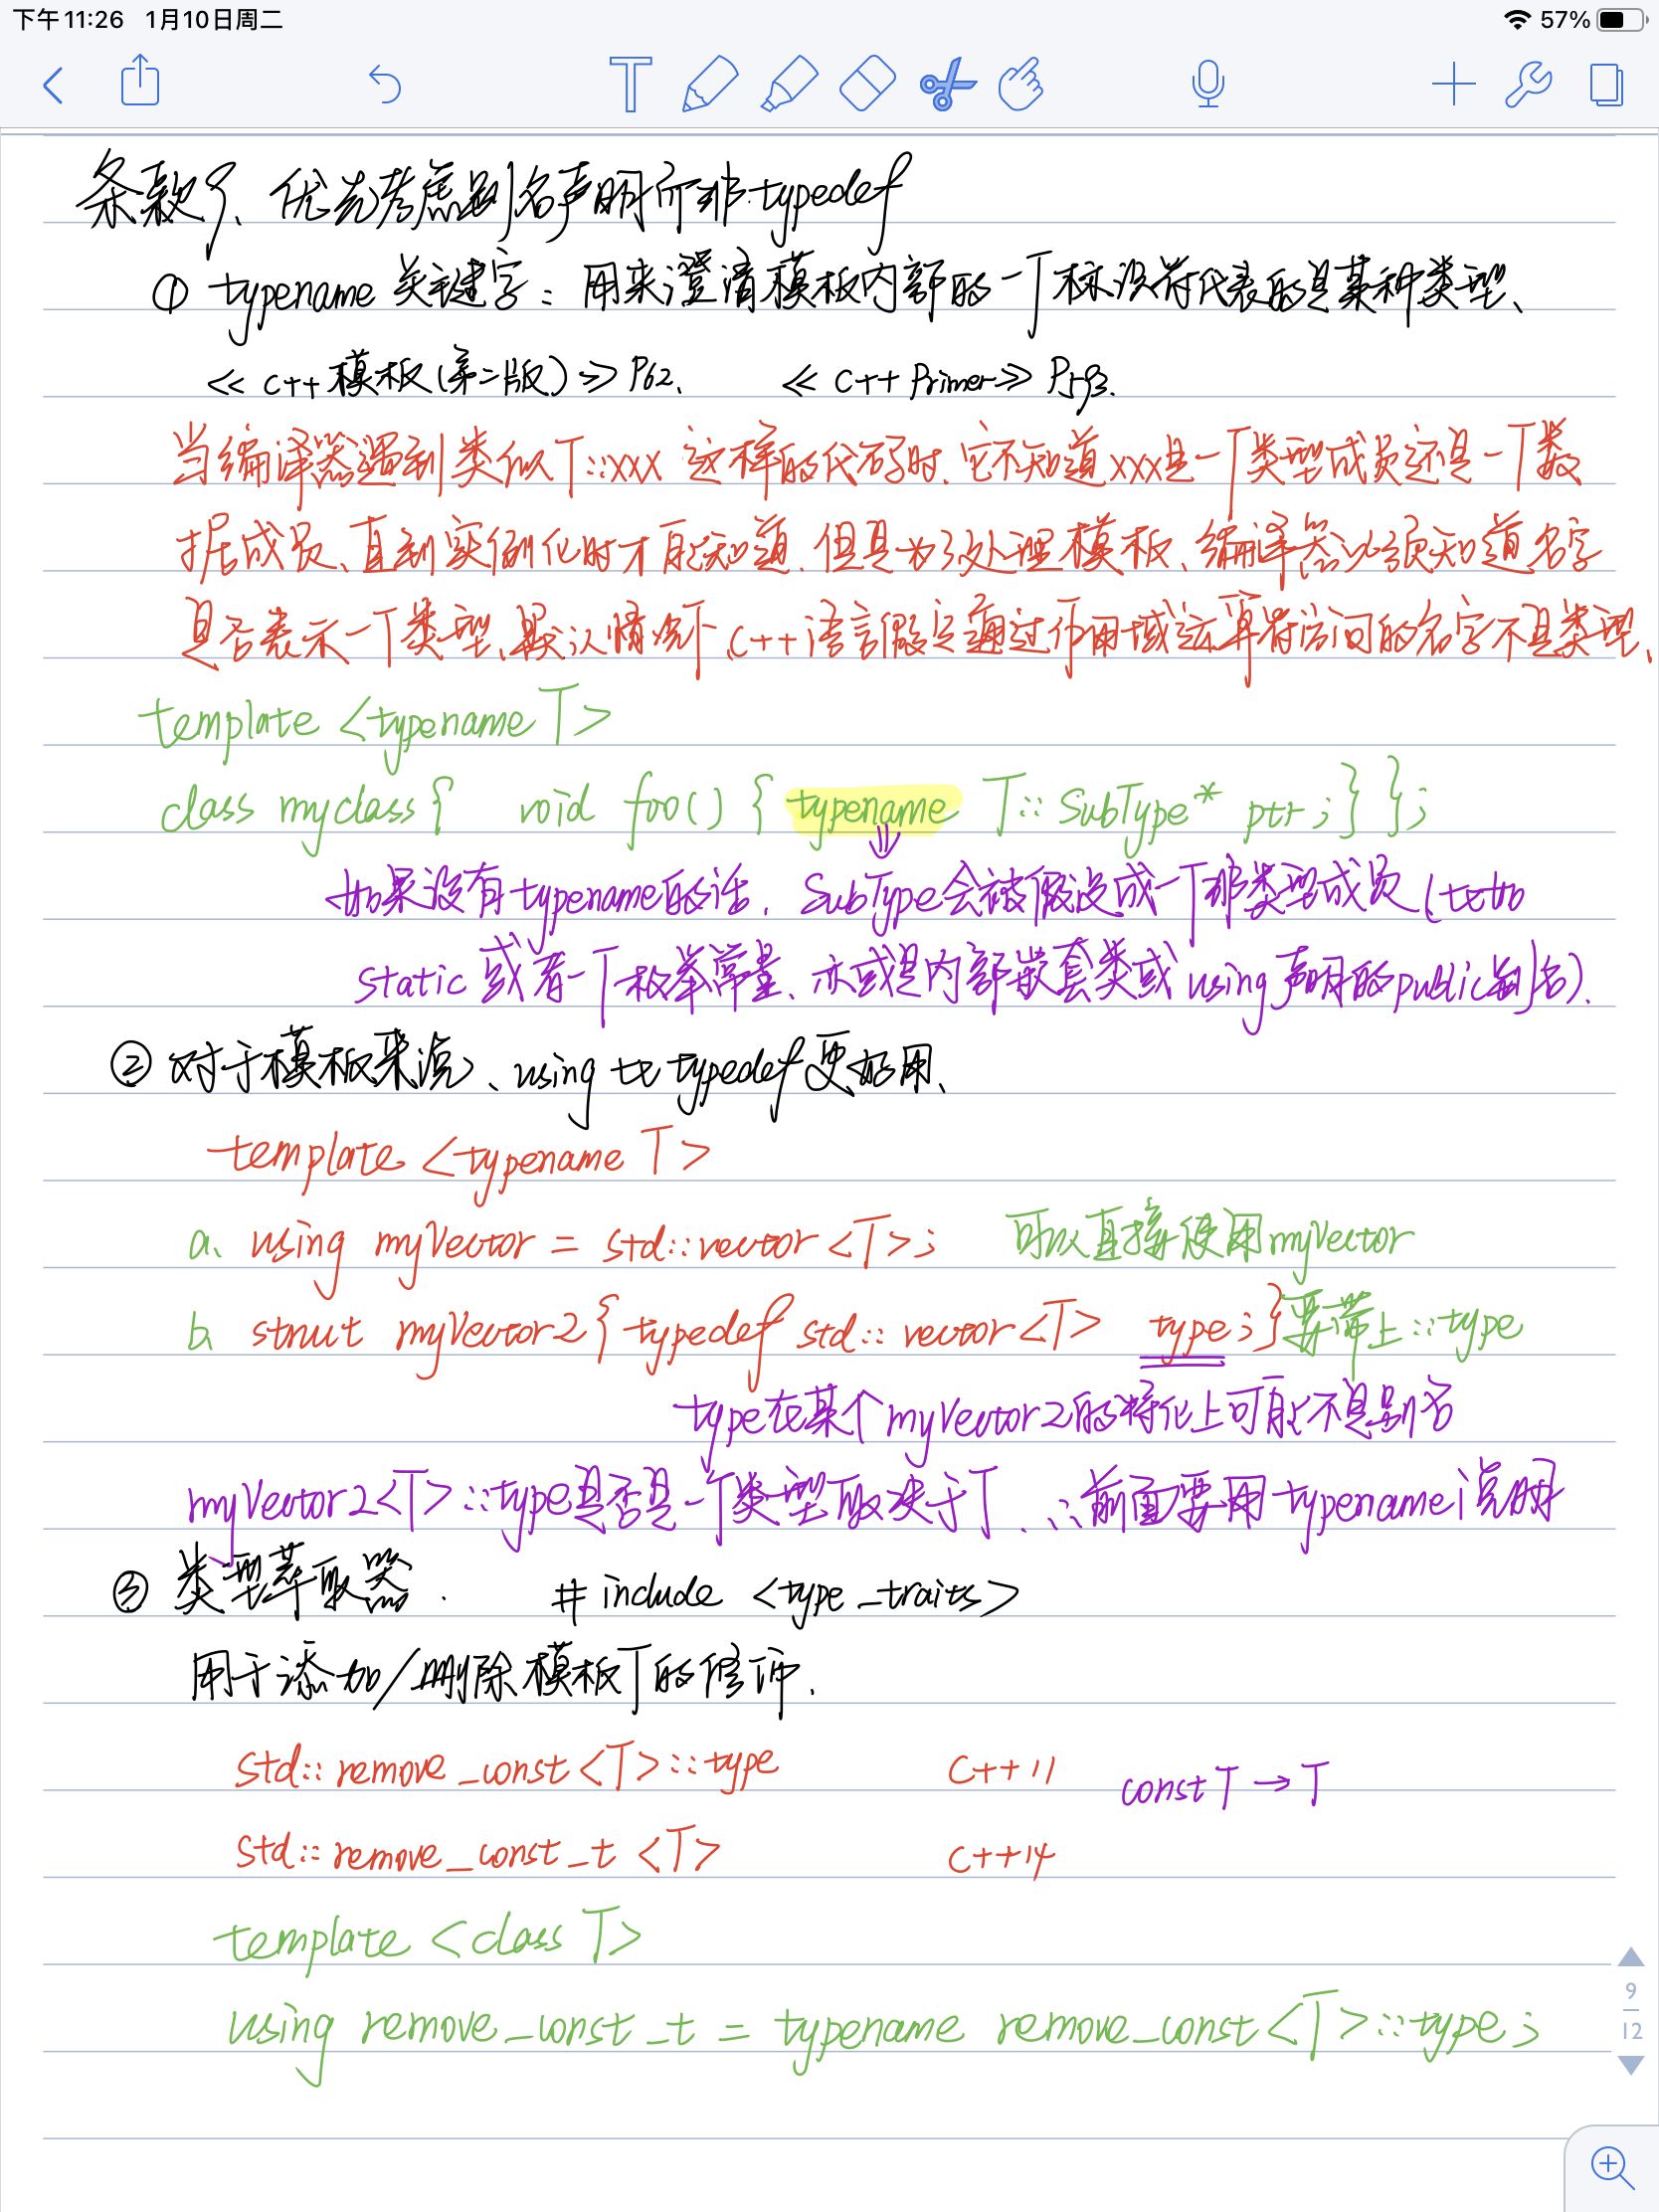 下午11:26 1月10日周二 57%
条款9、优先考虑别名声明而非typedef
① typename 关键字：用来澄清模板内部的一个标识符代表的是某种类型、
<< C++ 模板(第二版) >> P62. << C++ Primer >> P593.
当编译器遇到类似T::xxx 这样的代码时，它不知道xxx是一个类型成员还是一个数
据成员、直到实例化时才能知道，但是为了处理模板、编译器必须知道名字
是否表示一个类型、默认情况下、C++语言假定通过作用域运算符访问的名字不是类型、
template <typename T>
class myclass{ void foo() { typename T::SubType* ptr; } };
如果没有typename的话，SubType会被假设成一个非类型成员(比如
static 或者一个枚举常量、亦或是内部嵌套类或using声明的public别名).
② 对于模板来说、using 比 typedef更好用、
template <typename T>
a、using myVector = std::vector<T>; 可以直接使用myVector
b、struct myVector2{ typedef std::vector<T> type; } 要带上::type
type在某个myVector2的特化上可能不是别名
myVector2<T>::type是否是一个类型取决于T、∴前面要用typename说明
③ 类型萃取器. # include <type_traits>
用于添加/删除模板T的修饰.
std::remove_const<T>::type C++11 const T → T
std::remove_const_t <T> C++14
template <class T>
using remove_const_t = typename remove_const<T>::type;
9
12